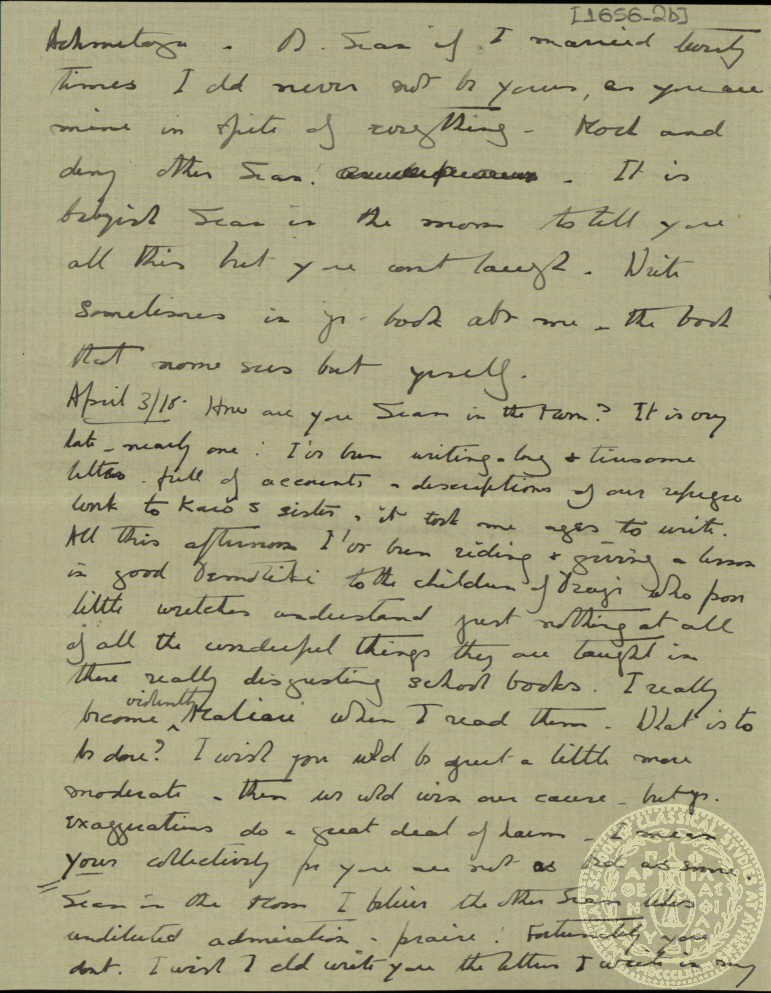 [1656-2b]
. D. Sean if I married twenty
times I cld never not be yours, as you are
mine in spite of everything - and
deny other Sean! . It is
babyish Sean in the moon to tell you
all this but you wont laugh. Write
sometimes in yr. book abt me - the book
that none sees but yrself.
April 3/18. How are you Sean in the moon? It is very
late - nearly one! I've been writing long & tiresome
letters full of accounts & descriptions of our refugee
work to Karo's sister, it took me ages to write.
All this afternoon I've been riding & giving a lesson
in good Demotiki to the children of who poor
little wretches understand just nothing at all
of all the wonderful things they are taught in
there really disgusting school books. I really
become violently Maliari when I read them. What is to
be done? I wish you wld be just a little more
moderate - then we wld win our cause - but yr.
exaggerations do a great deal of harm - I mean
your collectively for you are not as bad as some.
Sean in the moon I believe the other Sean likes
undiluted admiration & praise! Fortunately you
dont. I wish I cld write you the letters I write in my